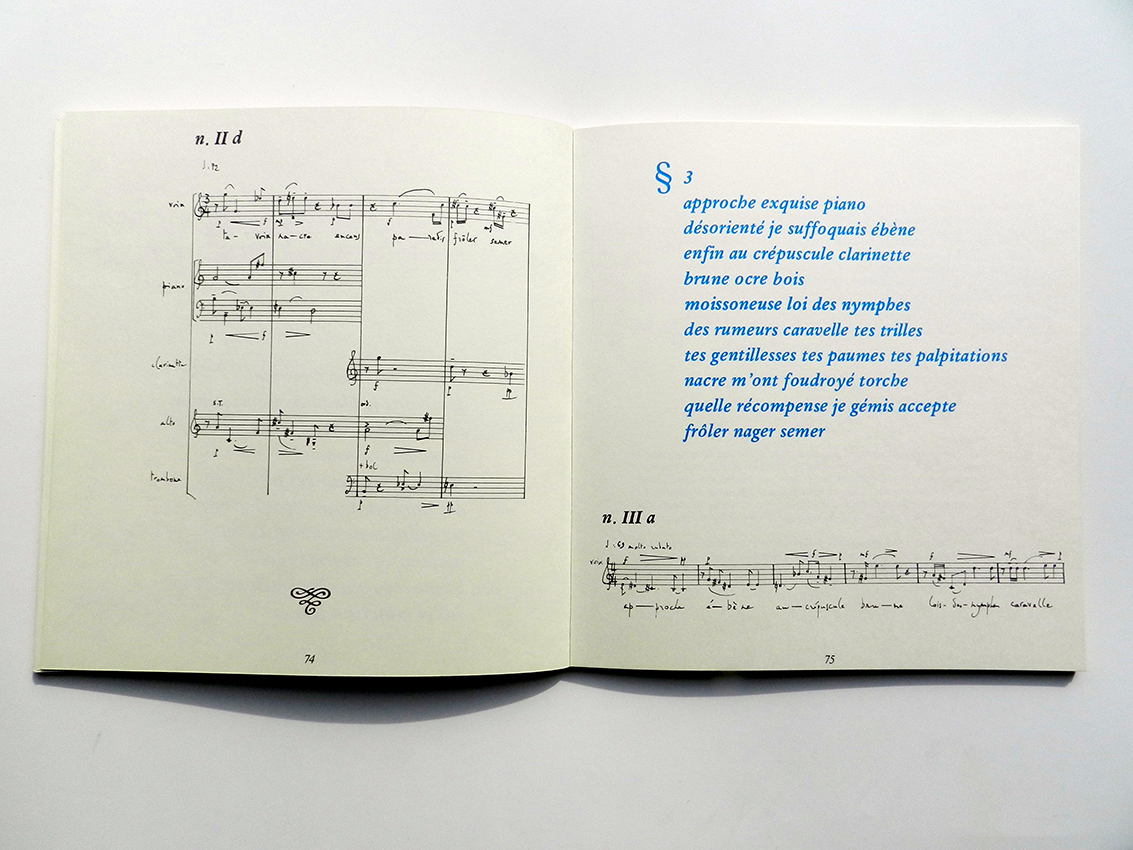 n. II d
voix
p f mf p f f mf
ta-voix na-cre encens pa-radis frôler semer
piano
p f
clarinette
f p pp
s.T.
alto
p f
trombone
p pp
74
§ 3
approche exquise piano
désorienté je suffoquais ébène
enfin au crépuscule clarinette
brune ocre bois
moissoneuse loi des nymphes
des rumeurs caravelle tes trilles
tes gentillesses tes paumes tes palpitations
nacre m'ont foudroyé torche
quelle récompense je gémis accepte
frôler nager semer
n. III a
molto rubato
voix
ap-proche é-bène au-crépuscule bru-ne lois-des-nymphes caravelle
75